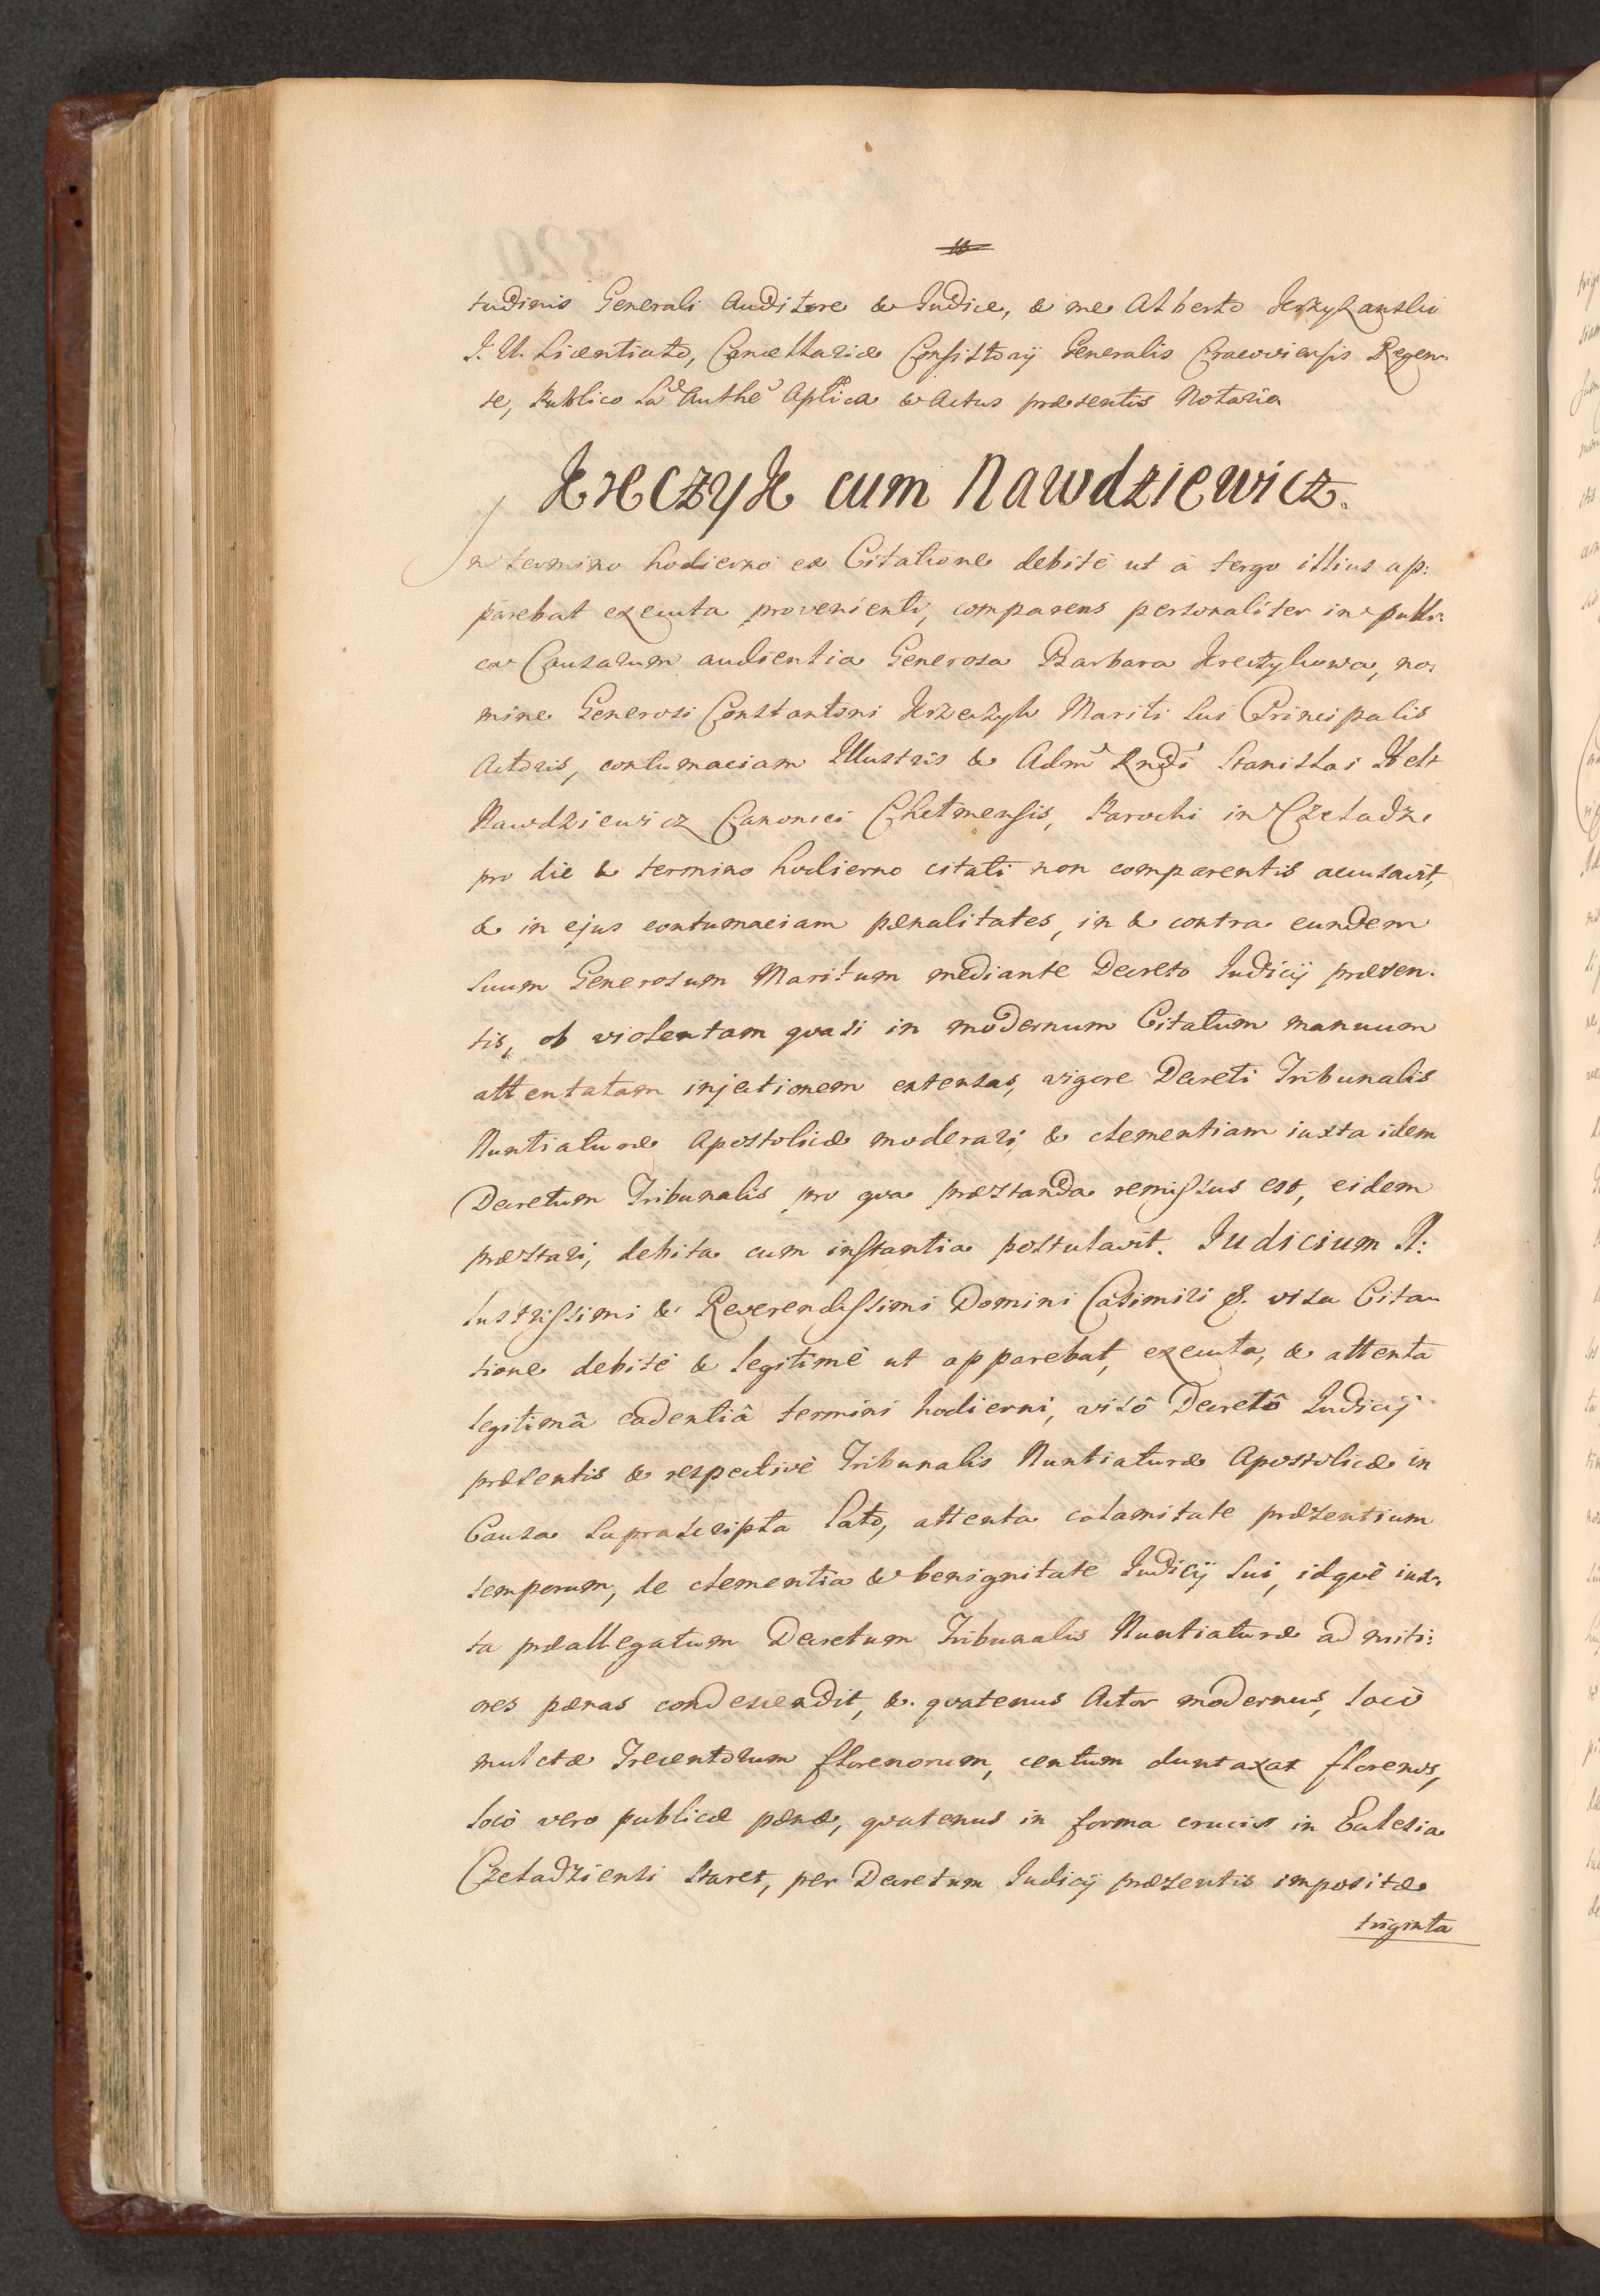 tudinis Generali Auditore & Judice, & me Alberto
J. U. Licentiato, Cancellariæ Consistorij Generalis Cracoviensis Regen-
te, Publico Sa Authe Aplica & Actus præsentis Notario
Kreczyk cum Nawdziewicz.
In termino hodierno ex Citatione debitè ut à tergo illius ap:
parebat executa provenienti, comparens personaliter in publi:
ca Causarum audientia Generosa Barbara Kreczykowa, no:
mine Generosi Constantini Krzeczyk Mariti sui Principalis
Actoris, contumaciam Illustris & Adm Rndi Stanislai
Nawdziewicz Canonici Chelmensis, Parochi in Czeladz
pro die & termino hodierno citati non comparentis accusavit,
& in ejus contumaciam pænalitates, in & contra eundem
suum Generosum Maritum mediante Decreto Judicij præsen-
tis, ob violentam quasi in modernum Citatum manuum
attentatam injectionem extensas, vigore Decreti Tribunalis
Nuntiaturæ Apostolicæ moderari, & clementiam iuxta idem
Decretum Tribunalis pro qua præstanda remissus est, eidem
præstari, debita cum instantia postulavit. Judicium Il:
lustrissimi & Reverendissimi Domini Casimiri &. visa Cita-
tione debitè & legitimè ut apparebat, executa, & attenta
legitimâ cadentiâ termini hodierni, visô Decretô Judicij
præsentis & respectivè Tribunalis Nuntiaturæ Apostolicæ in
Causa suprascripta lato, attenta calamitate præsentium
temporum, de clementia & benignitate Judicij sui, idquè iux-
ta præallegatum Decretum Tribunalis Nuntiaturæ ad miti:
ores pænas condescendit, &. quatenus Actor modernus, locô
mulctæ Trecentorum florenorum, centum duntaxat florenos,
locô vero publicæ pænæ, quatenus in forma crucis in Eclesia
Czeladziensi staret, per Decretum Judicij præsentis impositæ
triginta